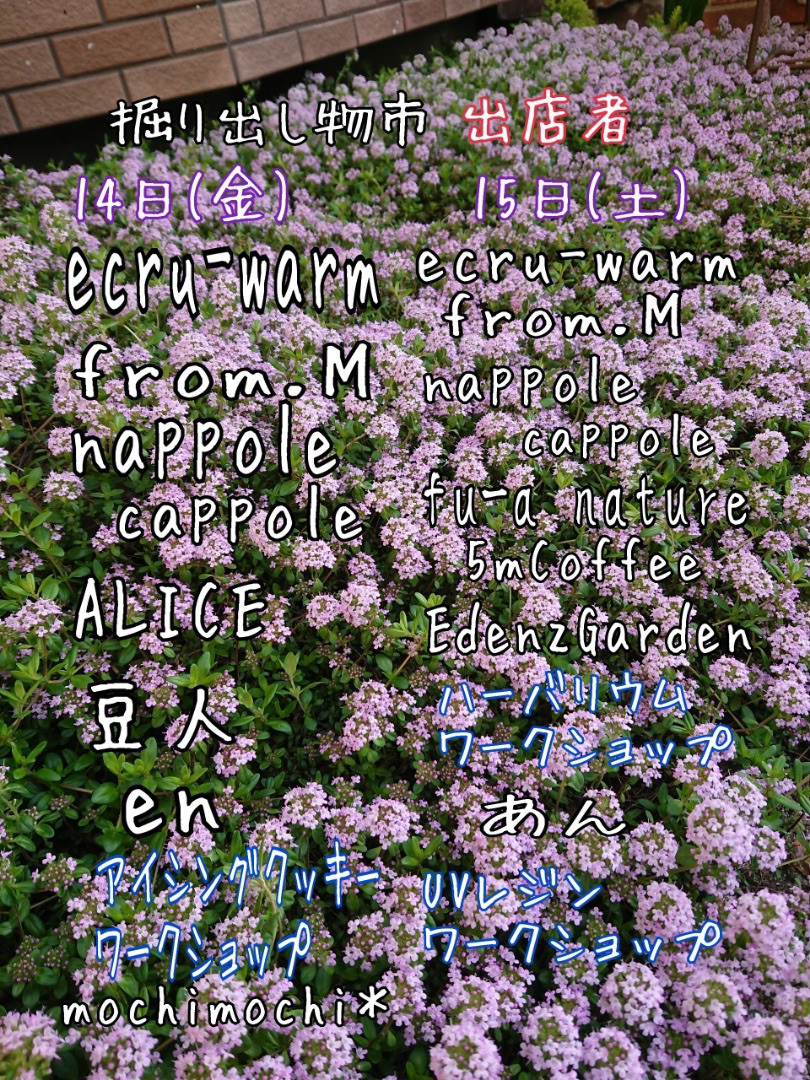 掘り出し物市 出店者
14日(金)
ecru-warm
from.M
nappole
cappole
ALICE
豆人
en
アイシングクッキー
ワークショップ
mochimochi*
15日(土)
ecru-warm
from.M
nappole
cappole
fu-a nature
5mCoffee
EdenzGarden
ハーバリウム
ワークショップ
あん
UVレジン
ワークショップ